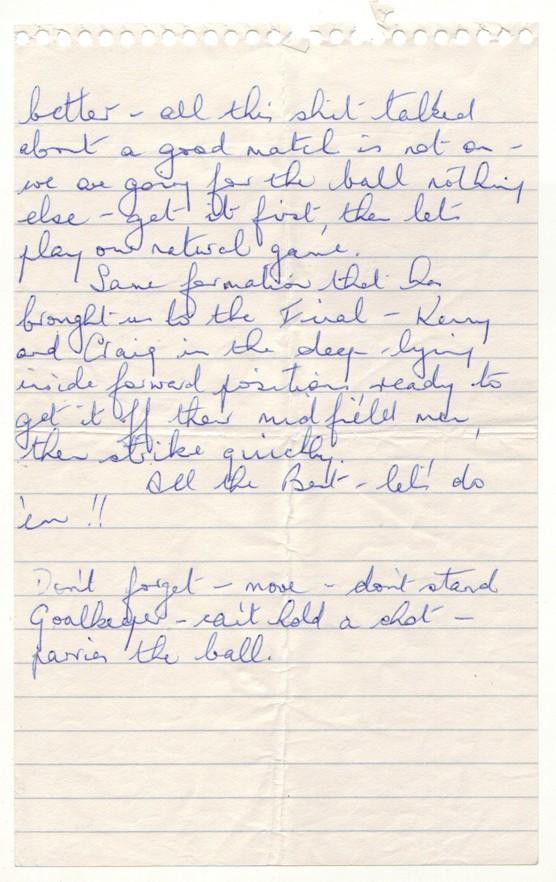 better - all this shit talked
about a good match is not on -
we are going for the ball nothing
else - get it first, then let's
play our natural game.
Same formation that has
brought us to the Final - Kenny
and Craig in the deep-lying
inside forward positions ready to
get it off their midfield men,
then strike quickly.
All the Best - let's do
'em !!
Don't forget - move - don't stand
Goalkeeper - can't hold a shot -
parries the ball.